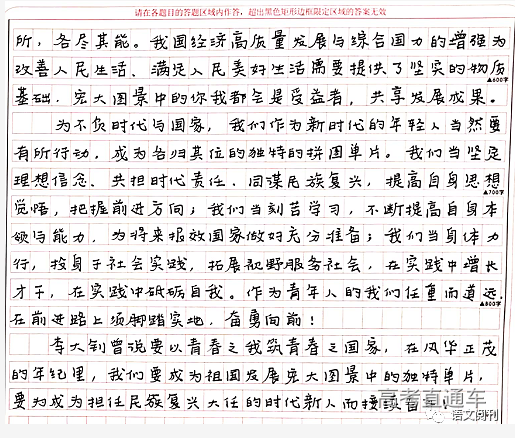 请在各题目的答题区域内作答，超出黑色矩形边框限定区域的答案无效
所，各尽其能。我国经济高质量发展与综合国力的增强为
改善人民生活、满足人民美好生活需要提供了坚实的物质
▲600字
基础，宏大图景中的你我都会是受益者，共享发展成果。
为不负时代与国家，我们作为新时代的年轻人当然要
有所行动，成为各归其位的独特的拼图单片。我们当坚定
理想信念、共担时代责任、同谋民族复兴，提高自身思想
▲700字
觉悟，把握前进方向；我们当刻苦学习，不断提高自身本
领与能力，为将来报效国家做好充分准备；我们当身体力
行，投身于社会实践，拓展视野服务社会，在实践中增长
才干，在实践中砥砺自我。作为青年人的我们任重而道远，
▲800字
在前进路上须脚踏实地，奋勇向前！
李大钊曾说要以青春之我筑青春之国家，在风华正茂
的年纪里，我们要成为祖国发展宏大图景中的独特单片，
要为成为担任民族复兴大任的时代新人而接续奋
高考直通车
语文阅刊